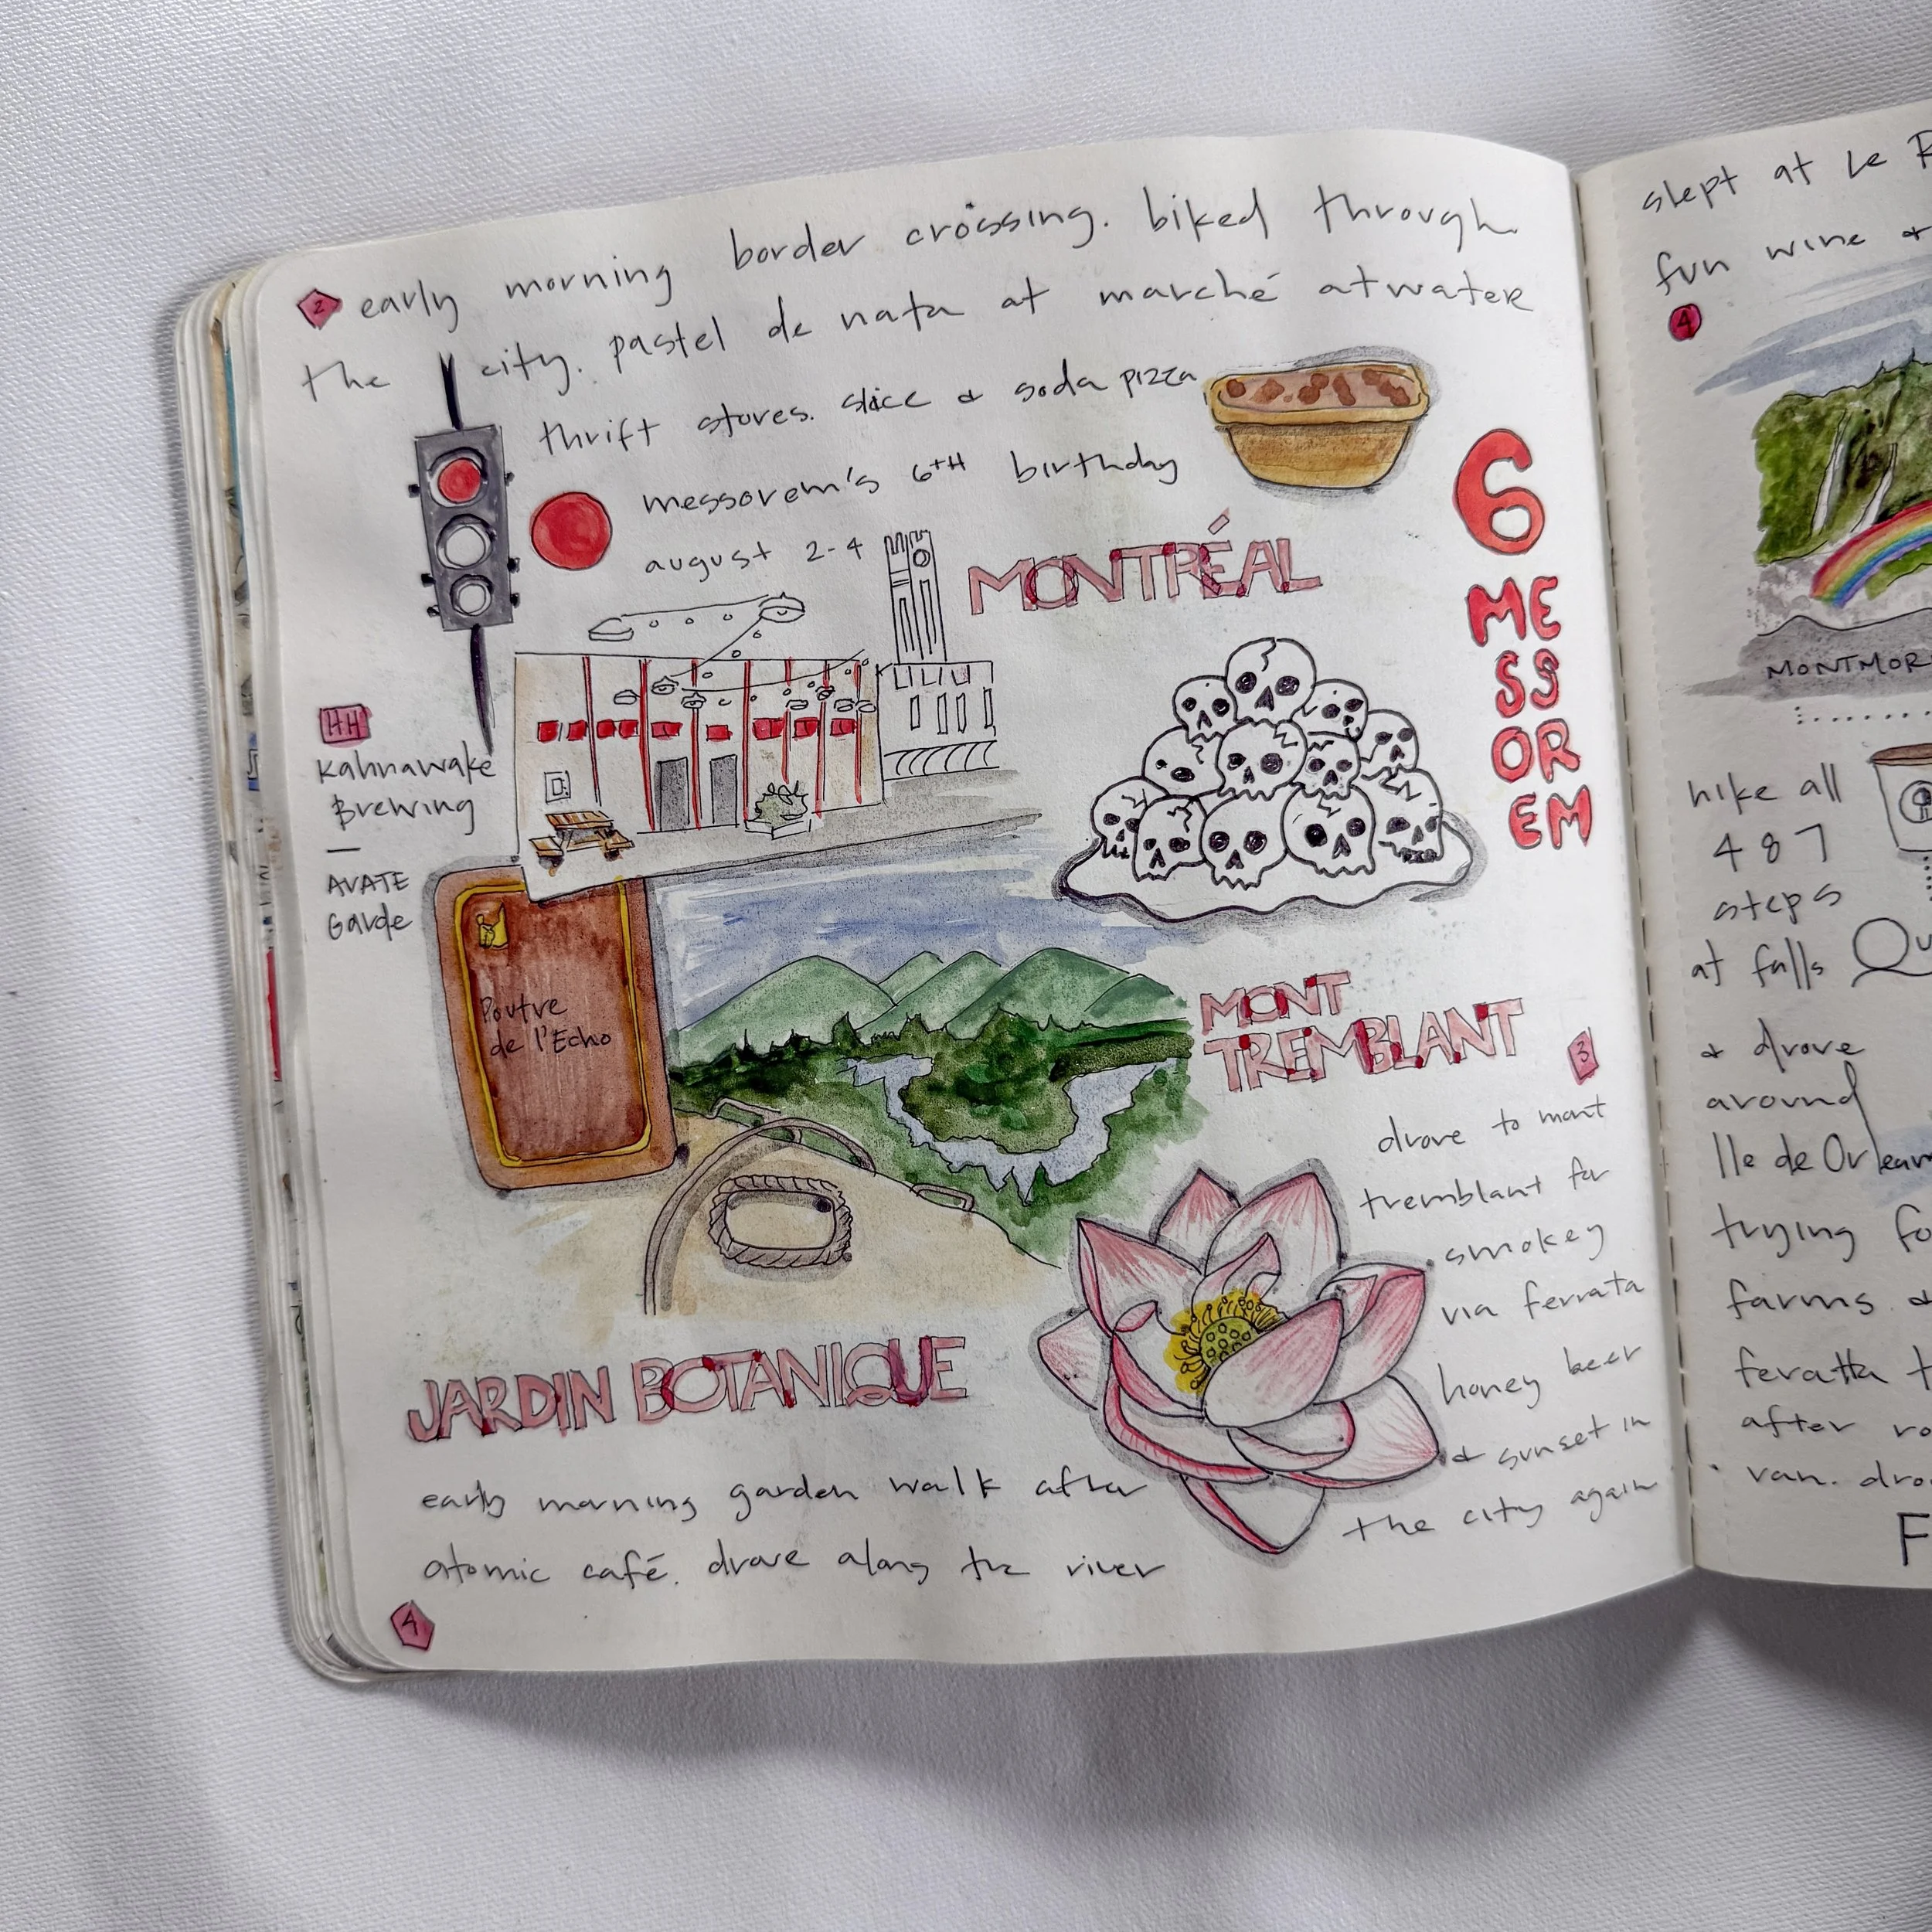 2 early morning border crossing. biked through
the city. pastel de nata at marché atwater
thrift stores. slice & soda pizza
messorem's 6TH birthday
august 2-4
MONTRÉAL
6
ME
SS
OR
EM
HH
Kahnawake
Brewing
—
AVATE
Garde
Poutre
de l'Echo
MONT
TREMBLANT
3
drove to mont
tremblant for
smokey
via ferrata
honey beer
& sunset in
the city again
JARDIN BOTANIQUE
early morning garden walk after
atomic café. drove along the river
4
slept at Le
fun wine &
4
MONTMOR
hike all
487
steps
at falls
& drove
around
Ile de Orlean
trying fo
farms &
feratta t
after ro
van. dro
F